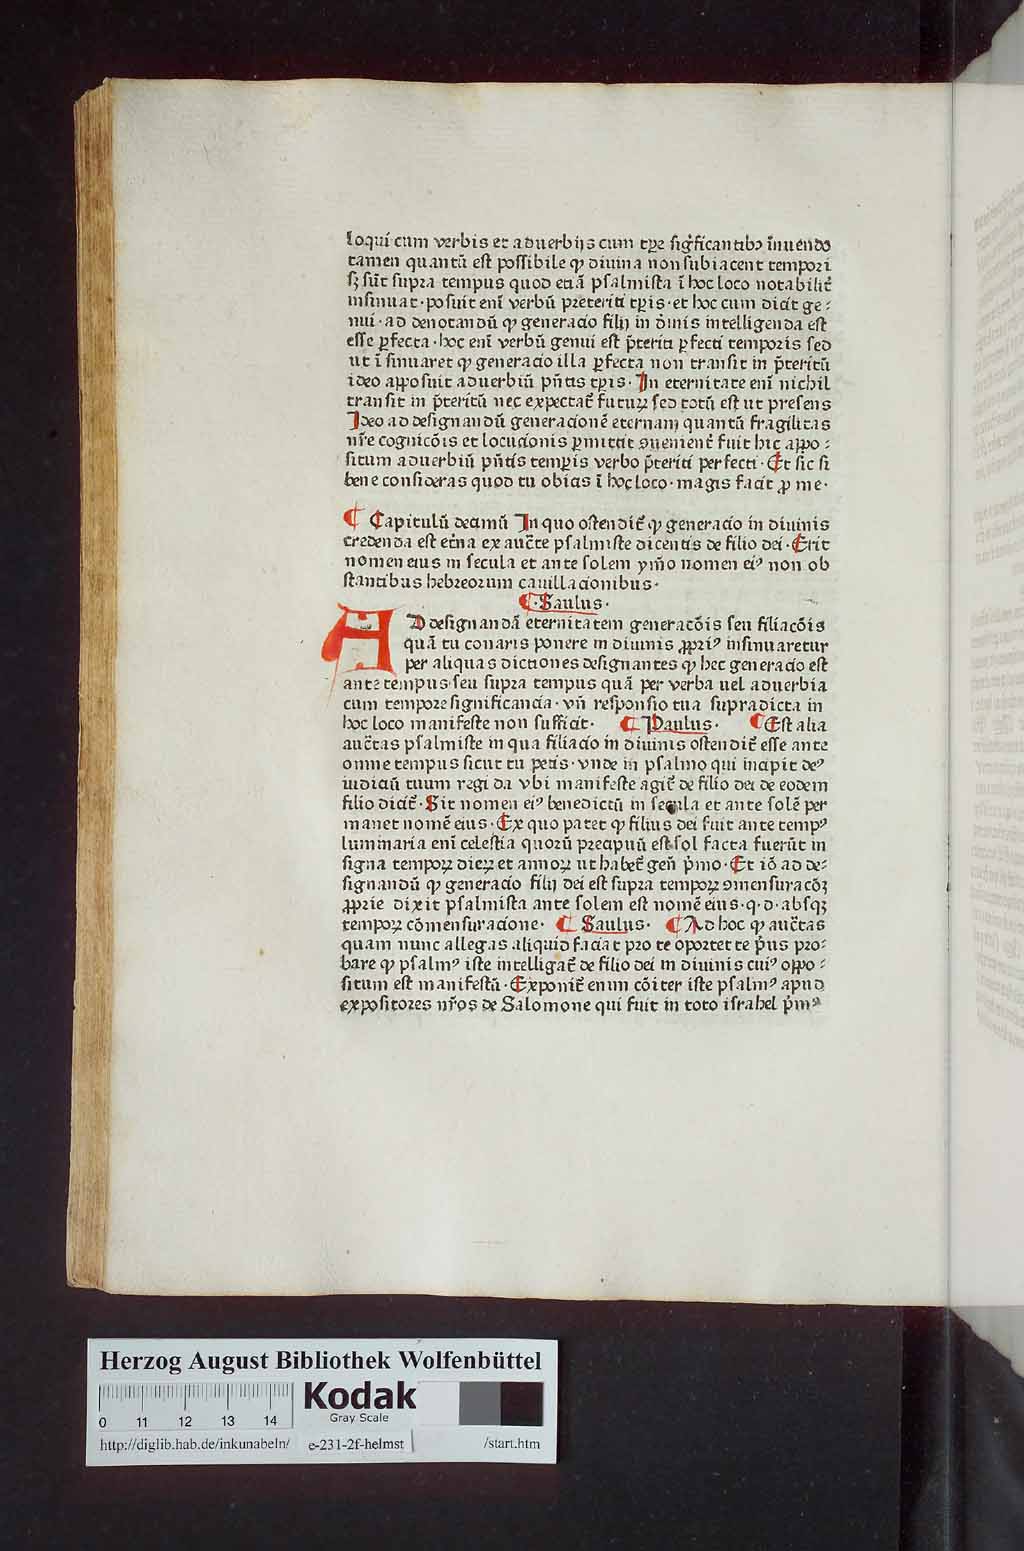 loqui cum verbis et aduerbijs cum tp̄e sigīficantibꝫ īnuendo
tamen quantū est possibile ꝙ diuina non subiacent tempori
sꝫ sūt supra tempus quod etiā psalmista ī hoc loco notabilit̄
insinuat·posuit enī verbū preteriti tp̄is·et hoc cum dicit ge⸗
nui·ad denotandū ꝙ generacio filij in dīnis intelligenda est
esse ꝑfecta·hoc enī verbū genui est p̄teriti ꝑfecti temporis sed
ut ī sinuaret ꝙ generacio illa ꝑfecta non transit in p̄teritū
ideo apposuit aduerbiū pn̄tis tp̄is·In eternitate enī nichil
transit in p̄teritū nec expectat̄ futuꝝ sed totū est ut presens
Ideo ad designandū generacionē eternam quantū fragilitas
nr̄e cognicōis et locucionis ꝑmittit ꝯuenient̄ fuit hic appo⸗
situm aduerbiū pn̄tis temꝑis verbo p̄teriti perfecti·Et sic si
bene consideras quod tu obicis ī hoc loco·magis facit ꝓ me·
¶ Capitulū decimū In quo ostendit̄ ꝙ generacio in diuinis
credenda est et̄na ex auct̄te psalmiste dicentis de filio dei·Erit
nomen eius in secula et ante solem ym̄o nomen eiꝰ non ob
stantibus hebreorum cauillacionibus·
¶·Saulus·
AD designandā eternitatem generacōis seu filiacōis
quā tu conaris ponere in diuinis ꝓpriꝰ insinuaretur
per aliquas dictiones designantes ꝙ hec generacio est
ante tempus seu supra tempus quā per verba uel aduerbia
cum tempore significancia·vn̄ responsio tua supradicta in
hoc loco manifeste non sufficit· ¶ Paulus· ¶ Est alia
auct̄tas psalmiste in qua filiacio in diuinis ostendit̄ esse ante
omne tempus sicut tu petis·vnde in psalmo qui incipit deꝰ
iudiciū tuum regi da vbi manifeste agit̄ de filio dei de eodem
filio dicit̄·Sit nomen eiꝰ benedictū in secula et ante solē per
manet nomē eius·Ex quo patet ꝙ filius dei fuit ante tempꝰ
luminaria enī celestia quorū precipuū est sol facta fuerūt in
signa tempoꝝ dieꝝ et annoꝝ ut habet̄ gen̄ p̄mo·Et iō ad de⸗
signandū ꝙ generacio filij dei est supra tempoꝝ ꝯmensuracōꝫ
ꝓprie dixit psalmista ante solem est nomē eius·q·d·absqꝫ
tempoꝝ cōmensuracione· ¶ Saulus· ¶ Ad hoc ꝙ auct̄tas
quam nunc allegas aliquid faciat pro te oportet te p̄us pro⸗
bare ꝙ psalmꝰ iste intelligat̄ de filio dei in diuinis cuiꝰ oppo⸗
situm est manifestū·Exponit̄ enim cōiter iste psalmꝰ apud
expositores nr̄os de Salomone qui fuit in toto israhel p̄mꝰ
Herzog August Bibliothek Wolfenbüttel
0 11 12 13 14
Kodak
Gray Scale
http://diglib.hab.de/inkunabeln/ e-231-2f-helmst /start.htm